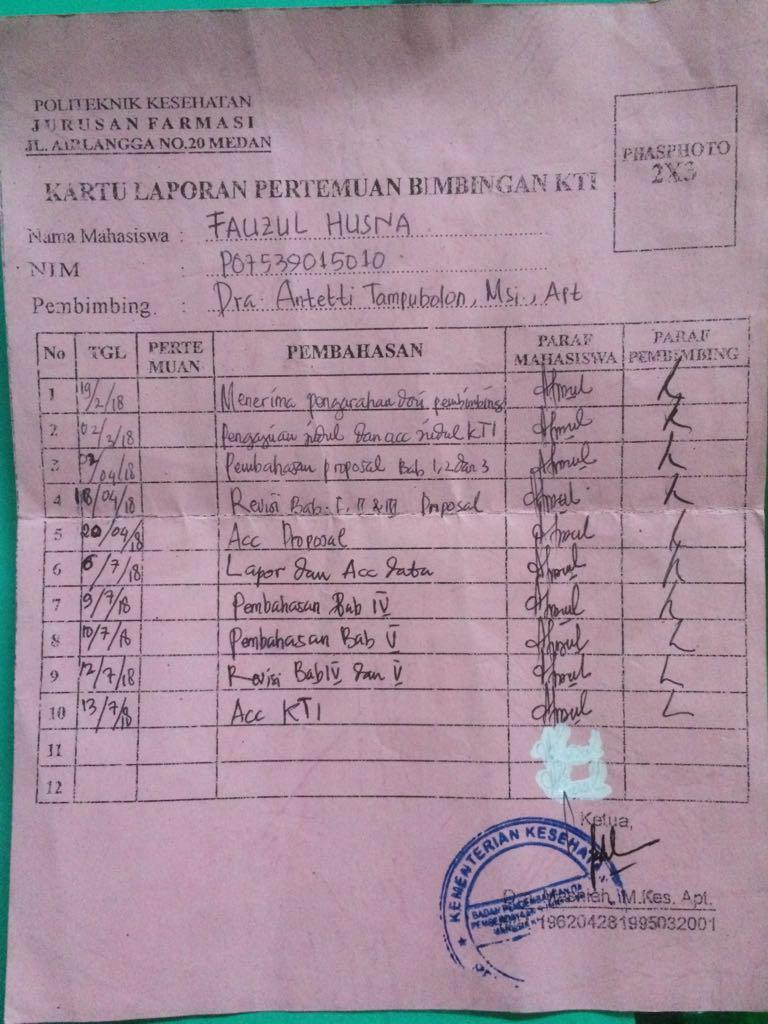 POLITEKNIK KESEHATAN
JURUSAN FARMASI
JL. AIRLANGGA NO.20 MEDAN
PHASPHOTO
2X3
KARTU LAPORAN PERTEMUAN BIMBINGAN KTI
Nama Mahasiswa : FAUZUL HUSNA
NIM : P07539015010
Pembimbing : Dra. Antetti Tampubolon, Msi., Apt
No TGL PERTE MUAN PEMBAHASAN PARAF MAHASISWA PARAF PEMBIMBING
1 19/2/18 Menerima pengarahan dari pembimbing
2 02/3/18 Pengajuan judul dan acc judul KTI
3 02/04/18 Pembahasan proposal Bab 1, 2 dan 3
4 18/04/18 Revisi Bab. I, II & III Proposal
5 20/04/18 Acc Proposal
6 6/7/18 Lapor dan Acc data
7 9/7/18 Pembahasan Bab IV
8 10/7/18 Pembahasan Bab V
9 12/7/18 Revisi Bab IV dan V
10 13/7/18 Acc KTI
11
12
Ketua,
KEMENTERIAN KESEHA
M.Kes. Apt.
196204281995032001